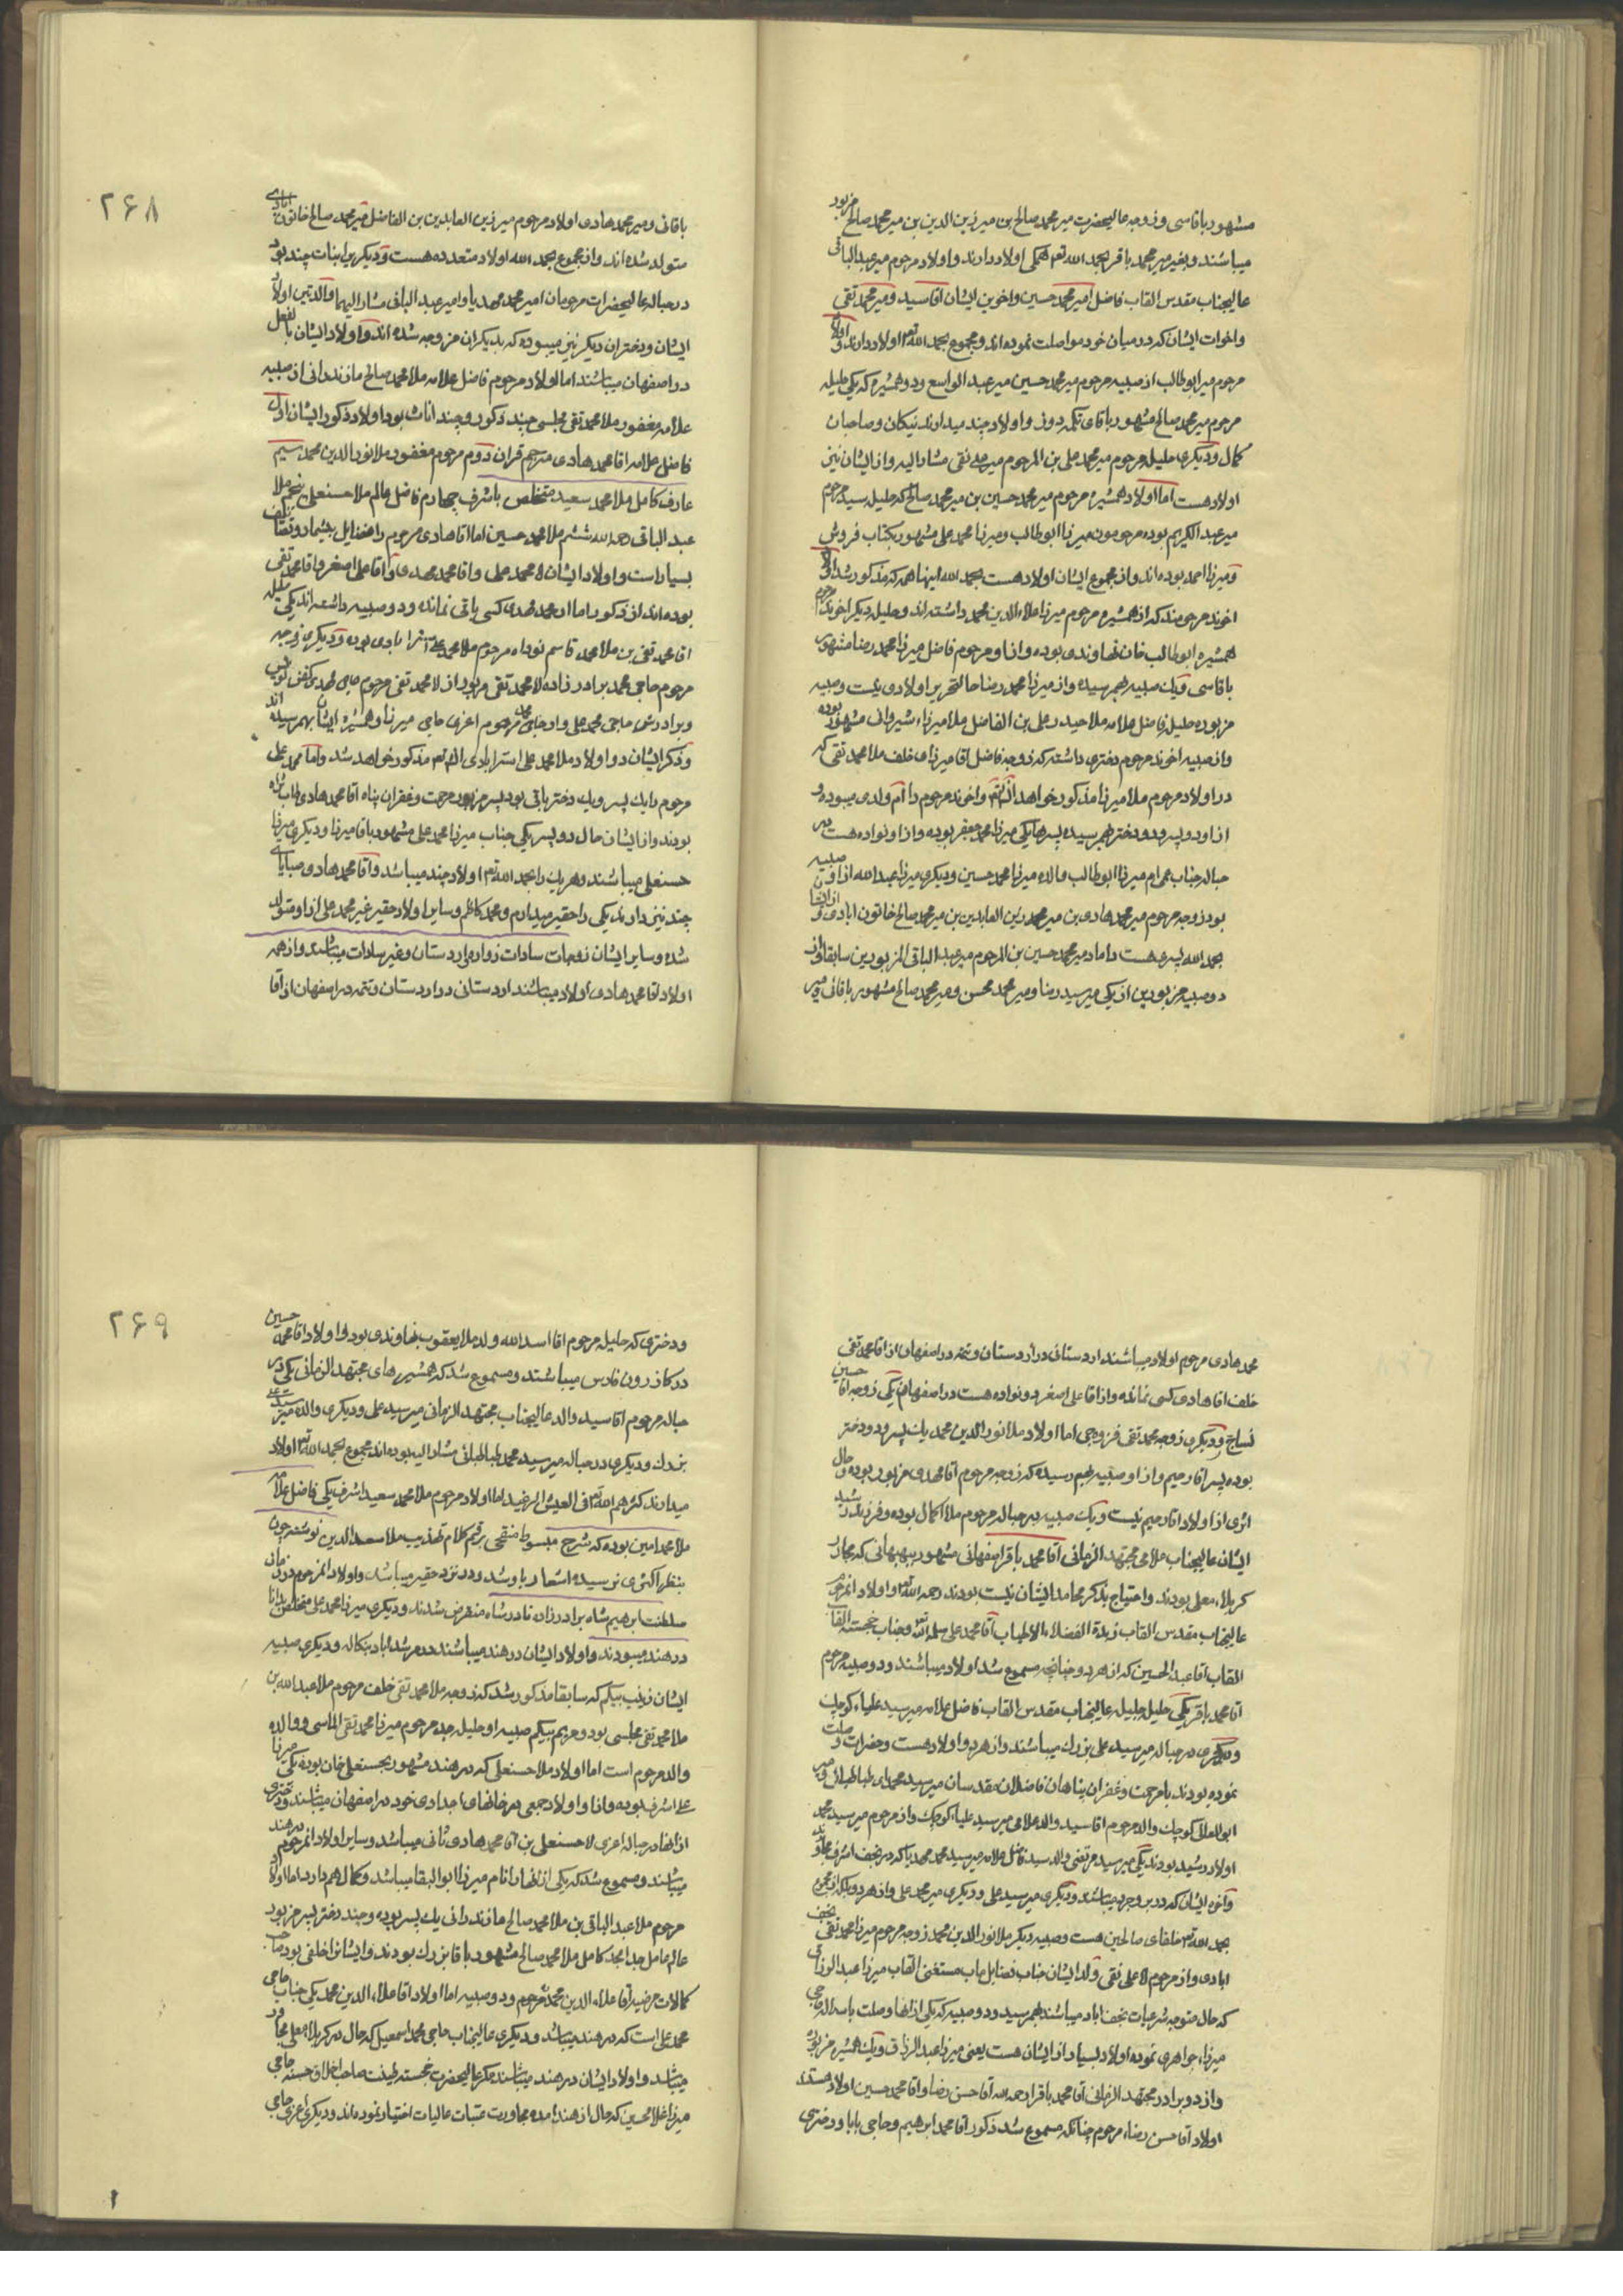 مشهور باقاسی و زوجه عالیحضرت میر محمد صالح بن میر زین الدین بن میر محمد صالح مزبور
میباشند و بغیر میر محمد باقر بحمد الله تعم همکی اولاد دارند و اولاد مرحوم میر عبد الباقی
عالیجناب مقدس القاب فاضل امیر محمد حسین و اخوین ایشان اقا سید و میر محمد تقی
و اخوات ایشان که در میان خود مواصلت نموده اند و مجموع بحمد الله تعم اولاد دارند و اولاد
مرحوم میر ابوطالب از صبیه مرحوم میر محمد حسین میر عبد الواسع و دو همشیره که یکی حلیله
مرحوم میر محمد صالح مشهور باقای تکمه دوز و اولاد چند میدارند نیکان و صاحبان
کمال و دیکری حلیله مرحوم میر محمد علی بن المرحوم میر علی نقی مشار الیه و از ایشان نیز
اولاد هست اما اولاد همشیره مرحوم میر محمد حسین بن میر محمد صالح که حلیله سید مرحوم
میر عبد الکریم بوده مرحومون میرزا ابوطالب و میرزا محمد علی مشهور بکتاب فروش
و میرزا احمد بوده اند و از مجموع ایشان اولاد هست بحمد الله اینها همه که مذکور شد اولاد
اخوند مرحومند که از همشیره مرحوم میرزا علاء الدین محمد داشته اند و حلیله دیکر اخوند مرحوم
همشیره ابوطالب خان نهاوندی بوده و از او مرحوم فاضل میرزا محمد رضا مشهور
باقاسی و یک صبیه بهم رسیده و از میرزا محمد رضا حال التحریر اولادی نیست و صبیه
مزبوره حلیله فاضل علامه ملا حیدر علی بن الفاضل ملا میرزاء شیروانی مشهور بوده
و از صبیه اخوند مرحوم دختری داشته که زوجه فاضل اقا میرزای خلف ملا محمد تقی که
در اولاد مرحوم ملا میرزا مذکور خواهد شد و اخوند مرحوم را ام ولدی میبوده و
از او دو پسر و دو دختر بهم رسیده پسرها یکی میرزا محمد جعفر بوده و از او نواده هست در
حباله جناب عم ام میرزا ابوطالب والد میرزا محمد حسین و دیکری میرزا عبد الله از او صبیه
بود زوجه مرحوم میر محمد هادی بن میر محمد زین العابدین بن میر محمد صالح خاتون ابادی و از انها
بحمد الله پسری هست داماد میر محمد حسین بن المرحوم میر عبد الباقی المزبورین سابقا و از
دو صبیه مزبورین از یکی میر سید رضا و میر محمد محسن و میر محمد صالح مشهور باقانی و میر
۲۶۸
باقانی و میر محمد هادی اولاد مرحوم میر زین العابدین بن الفاضل میر محمد صالح خاتون ابادی
متولد شده اند و از مجموع بحمد الله اولاد متعدده هست و دیکر میرا بنات چند بود
در حباله عالیحضرات مرحومان امیر محمد مهدیا و امیر عبد الباقی مشار الیهما و والدتین اولاد
ایشان و دختران دیکر نیز میبوده که بدیکران مزوجه شده اند و اولاد ایشان بالفعل
در اصفهان میباشند اما اولاد مرحوم فاضل علامه ملا محمد صالح مازندرانی از صبیه
علامه مغفور ملا محمد تقی مجلسی چند ذکور و چند اناث بود اولاد ذکور ایشان اول
فاضل علامه اقا محمد هادی مترجم قران دوم مرحوم مغفور ملا نور الدین محمد سیم
عارف کامل ملا محمد سعید متخلص باشرف چهارم فاضل عالم ملا حسنعلی پنجم ملا
عبد الباقی رحمه الله ششم ملا محمد حسین اما اقا هادی مرحوم را فضایل بیشمار و تصانیف
بسیار است و اولاد ایشان اقا محمد علی و اقا محمد مهدی و اقا علی اصغر و اقا محمد تقی
بوده اند از ذکور اما از محمد مهدی کسی باقی نمانده و دو صبیه داشته اند یکی حلیله
اقا محمد تقی بن ملا محمد قاسم نواده مرحوم ملا محمد علی استرابادی بوده و دیکری زوجه
مرحوم حاجی محمد برادر زاده ملا محمد تقی مزبور از ملا محمد تقی مرحوم حاجی مهدی کفن نویس
و برادرش حاجی محمد علی و از حاجی محمد مرحوم اعزی حاجی میرزا و همشیره ایشان بهم رسیده اند
و ذکر ایشان در اولاد ملا محمد علی استرابادی انش تعم مذکور خواهد شد و اما محمد علی
مرحوم را یک پسر و یک دختر باقی بود پسر مزبور مرحمت و غفران پناه اقا محمد هادی طاب ثراه
بودند و از ایشان حال دو پسر یکی جناب میرزا محمد علی مشهور باقا میرزا و دیکری میرزا
حسنعلی میباشند و هر یک را بحمد الله تعم اولاد چند میباشد و اقا محمد هادی صبایای
چند نیز دارند یکی را حقیر میدارم و محمد کاظم و سایر اولاد حقیر غیر محمد علی از او متولد
شده و سایر ایشان زوجات سادات زواره و اردستان و غیر سادات میباشند و از همه
اولاد اقا محمد هادی اولاد میباشند اردستانی در اردستان و تتمه در اصفهان از اقا
محمد هادی مرحوم اولاد میباشند اردستانی در اردستان و تتمه در اصفهان از اقا محمد تقی
خلف اقا هادی کسی نمانده و از اقا علی اصغر دو نواده هست در اصفهان یکی زوجه اقا حسین
نساج و دیکری زوجه محمد تقی قزوجی اما اولاد ملا نور الدین محمد یک پسر و دو دختر
بوده پسر اقا رحیم و از او صبیه بهم رسیده که زوجه مرحوم اقا مهدی مزبور بوده و حال
اثری از اولاد اقا رحیم نیست و یک صبیه در حباله مرحوم ملا اکمل بوده و فرزند رشید
ایشان عالیجناب علامی مجتهد الزمانی اقا محمد باقر اصفهانی مشهور ببهبهانی که مجاور
کربلاء معلی بودند و احتیاج بذکر محامد ایشان نیست بودند رحمه الله تعم و اولاد انمرحوم
عالیجناب مقدس القاب زبدة الفضلاء الاطیاب اقا محمد علی سلمه الله تعم و جناب خجسته القاب
القاب اقا عبد الحسین که از هر دو چنانچه مسموع شد اولاد میباشند و دو صبیه مرحوم
اقا محمد باقر یکی حلیله جلیله عالیجناب مقدس القاب فاضل علامه میر سید علیاء کوچک
و دیکری در حباله میر سید علی بزرک میباشند و از هر دو اولاد هست و حضرات وصلت
نموده بودند با مرحمت و غفران پناهان فاضلان مقدسان میر سید محمدای طباطبائی و میر
ابو المعالی کوچک والد مرحوم اقا سید والد علامی میر سید علیاء کوچک و از مرحوم میر سید محمد
اولاد رشید بودند یکی میر سید مرتضی والد سید فاضل علامه میر سید محمد مهدیا که در نجف اشرف مجاورند
و اخوه ایشان که در بروجرد میباشند و دیکری میر سید علی و دیکری میر محمد علی و از هر دو بلکه از مجموع
بحمد الله تعم خلفای صالحین هست و صبیه دیکر ملا نور الدین محمد زوجه مرحوم میرزا محمد تقی نجف
ابادی و از مرحوم ملا علی نقی ولد ایشان جناب فضایل ماب مستغنی القاب میرزا عبد الرزاق
که حال متوجه شرعیات نجف اباد میباشند بهم رسید و دو صبیه که یکی از انها وصلت با سد الله حاجی
میرزاء جواهری نموده اولاد بسیار از ایشان هست یعنی میرزا عبد الرزاق و یک همشیره مزبوره
و از دو برادر مجتهد الزمانی اقا محمد باقر رحمه الله اقا حسن رضا و اقا محمد حسین اولاد هستند
اولاد اقا حسن رضاء مرحوم چنانکه مسموع شد ذکور اقا محمد ابرهیم و حاجی بابا و دختری
۲۶۹
و دختری که حلیله مرحوم اقا اسد الله ولد ملا یعقوب نهاوندی بود و اولاد اقا محمد حسین
در کازرون فارس میباشند و مسموع شد که همشیرهای مجتهد الزمانی یکی در
حباله مرحوم اقا سید والد عالیجناب مجتهد الزمانی میر سید علی و دیکری والده میر سید علی
بزرک و دیکری در حباله میر سید محمد طباطبائی مشار الیه بوده اند مجموع بحمد الله تعم اولاد
میدارند کثرهم الله تعم فی العیش الرغید اما اولاد مرحوم ملا محمد سعید اشرف یکی فاضل علامه
ملا محمد امین بوده که شرح مبسوط منقحی بر قسم کلام تهذیب ملا سعد الدین نوشته چون
بنظر اکثری نرسیده اشعار باو شد و در نزد حقیر میباشد و اولاد انمرحوم در زمان
سلطنت ابرهیم شاه برادر زاده نادر شاه منقرض شدند و دیکری میرزا محمد علی متخلص بدانا
در هند میبودند و اولاد ایشان در هند میباشند در مرشد اباد بنکاله و دیکری صبیه
ایشان زینب بیکم که سابقا مذکور شد که زوجه ملا محمد تقی خلف مرحوم ملا عبد الله بن
ملا محمد تقی مجلسی بود و مریم بیکم صبیه او حلیله جد مرحوم میرزا محمد تقی الماسی و والده
والد مرحوم است اما اولاد ملا حسنعلی که در هند مشهور بحسنعلی خان بوده یکی میرزا
علی اشرف بوده و از او اولاد جمعی در خانهای اجدادی خود در اصفهان میباشند و دختری
از انها در حباله اعزی ملا حسنعلی بن اقا محمد هادی ثانی میباشد و سایر اولاد انمرحوم در هند
میباشند و مسموع شد که یکی از انها را نام میرزا ابو البقا میباشد و کمال هم دارد اما اولاد
مرحوم ملا عبد الباقی بن ملا محمد صالح مازندرانی یک پسر بوده و چند دختر پسر مزبور
عالم عامل جد امجد کامل ملا محمد صالح مشهور باقا بزرک بودند و ایشانرا خلفی بود صاحب
کمالات مرضیه اقا علاء الدین محمد مرحوم و دو صبیه اما اولاد اقا علاء الدین محمد یکی جناب حاجی
محمد علی است که در هند میباشد و دیکری عالیجناب حاجی محمد اسمعیل که حال در کربلاء معلی مجاور
میباشد و اولاد ایشان در هند میباشند مکر عالیحضرت خجسته طینت صاحب اخلاق حسنه حاجی
میرزا غلامحسین که حال از هند امده مجاورت عتبات عالیات اختیار نموده اند و دیکری اعزی حاجی